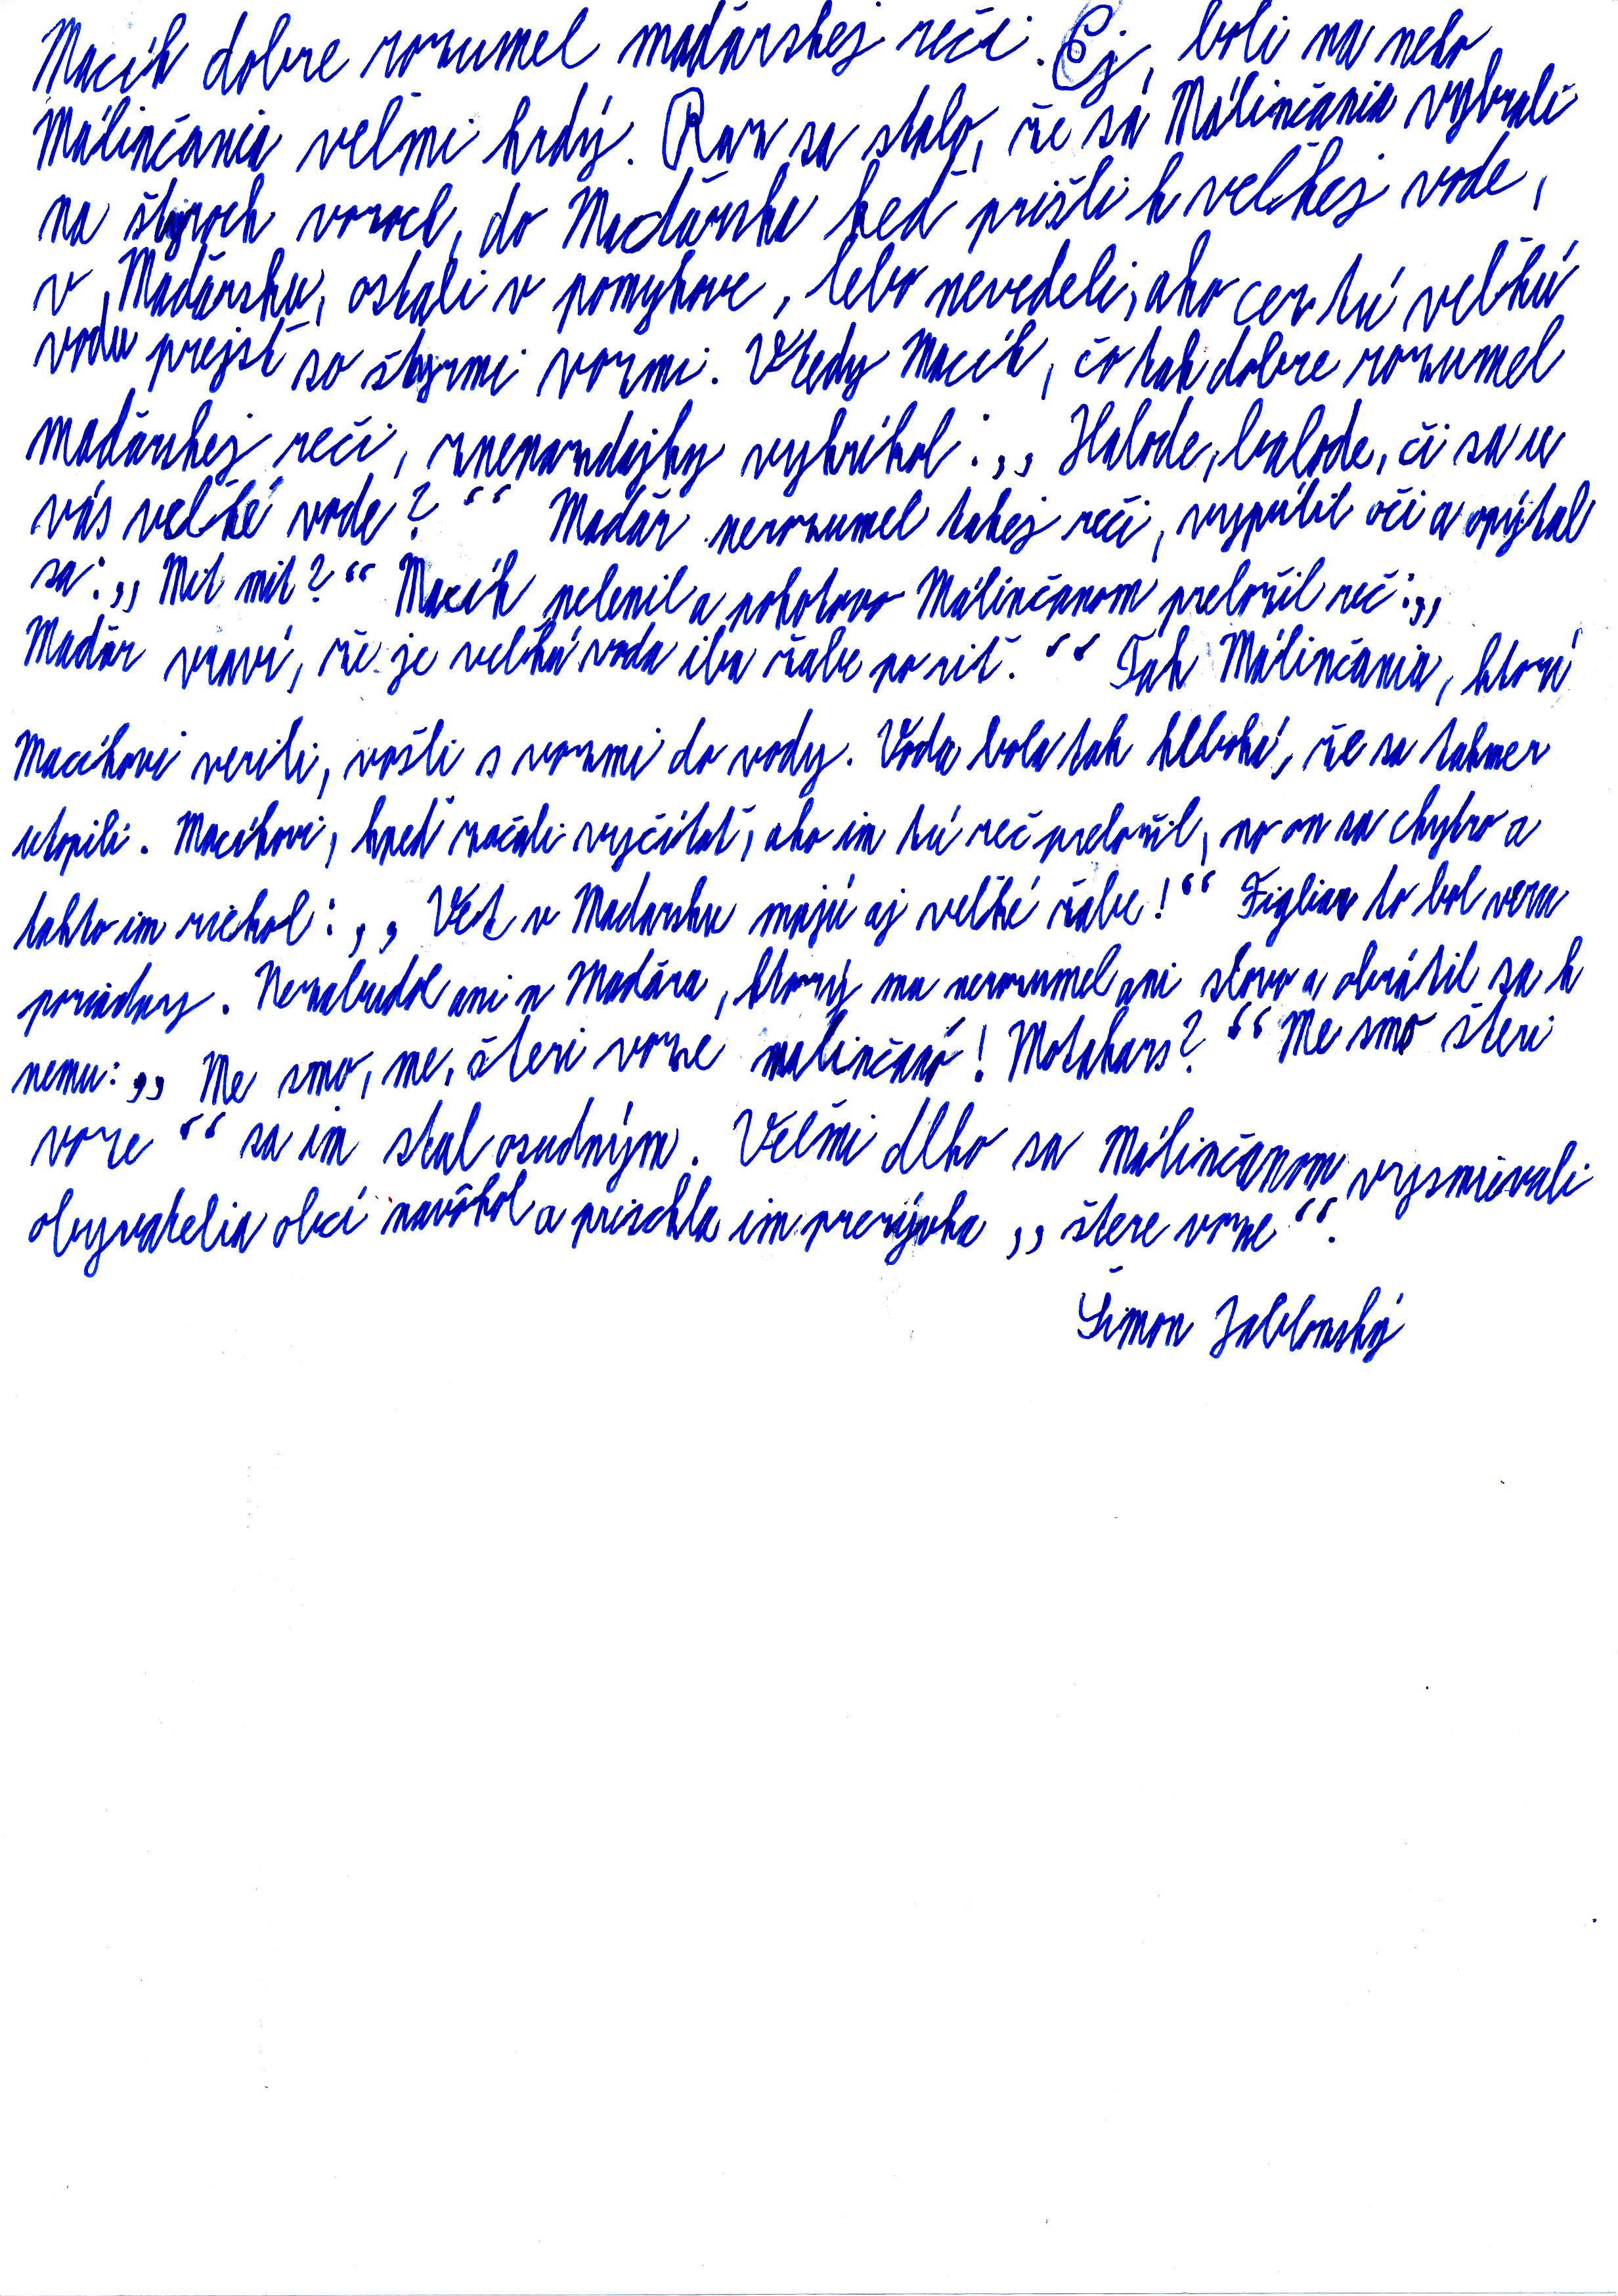 Macík dobre rozumel maďarskej reči. Ej, boli na neho
Málinčania veľmi hrdý. Raz sa stalo, že sa Málinčania vybrali
na štyroch vozoch, do Maďarska keď prišli k veľkej vode,
v Maďarsku, ostali v pomykove, lebo nevedeli, ako cez tú veľkú
vodu prejsť so štyrmi vozmi. Vtedy Macík, čo tak dobre rozumel
maďarskej reči, znenazdajky vykríkol: ,, Halode, balode, či sa u
vás veľké vode? “ Maďar nerozumel takej reči, vypúlil oči a opýtal
sa: ,, Mit mit? “ Macík nelenil a pohotovo Málinčanom preložil reč: ,,
Maďar vraví, že je veľká voda iba žabe po riť. “ Tak Málinčania, ktorí
Macíkovi verili, vošli s vozmi do vody. Voda bola tak hlboká, že sa takmer
utopili. Macíkovi, hneď začali vyčítať, ako im tú reč preložil, no on sa chytro a
takto im riekol: ,, Veť v Maďarsku majú aj veľké žabe! “ Figliar to bol veru
poriadny. Nezabudol ani n Maďara, ktorý mu nerozumel ani slovo a obrátil sa k
nemu: ,, Me smo, me, šteri voze malinčanó! Motakars? “ Me smo šteri
voze “ sa im stal osudným. Veľmi dlho sa Málinčanom vysmievali
obyvatelia obcí navôkol a prischla im prezývka ,, štere voze “.
Šimon Jablonský